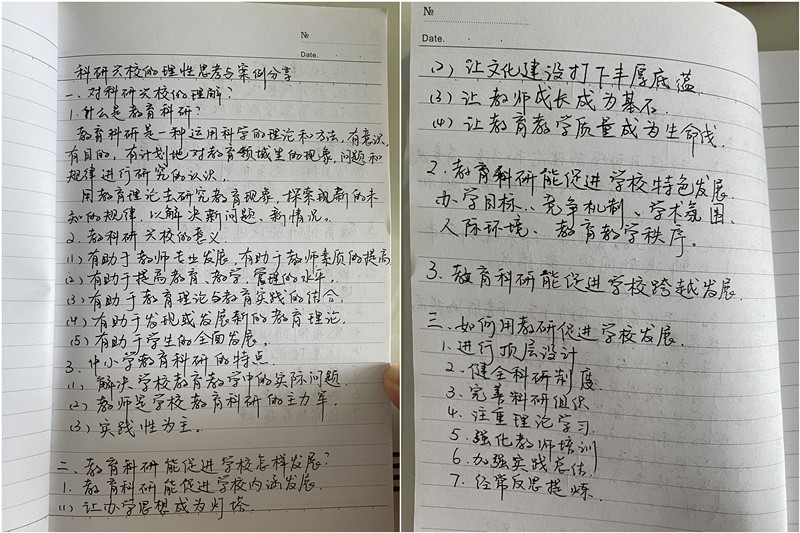 №
Date.
科研兴校的理性思考与案例分享
一、对科研兴校的理解?
1.什么是教育科研?
教育科研是一种运用科学的理论和方法,有意识,
有目的,有计划地对教育领域里的现象、问题和
规律进行研究的认识.
用教育理论去研究教育现象,探索现新的未
知的规律,以解决新问题、新情况。
2.教科研兴校的意义.
(1)有助于教师专业发展,有助于教师素质的提高
(2)有助于提高教育、教学,管理的水平.
(3)有助于教育理论与教育实践的结合.
(4)有助于发现或发展新的教育理论.
(5)有助于学生的全面发展.
3.中小学教育科研的特点.
(1)解决学校教育教学中的实际问题.
(2)教师是学校教育科研的主力军.
(3)实践性为主。
二、教育科研能促进学校怎样发展?
1.教育科研能促进学校内涵发展.
(1)让办学思想成为灯塔.
№
Date.
(2)让文化建设打下丰厚底蕴.
(3)让教师成长成为基石.
(4)让教育教学质量成为生命线.
2.教育科研能促进学校特色发展.
办学目标、竞争机制、学术氛围、
人际环境、教育教学秩序.
3.教育科研能促进学校跨越发展.
三、如何用教研促进学校发展.
1.进行顶层设计
2.健全科研制度
3.完善科研组织.
4.注重理论学习
5.强化教师培训
6.加强实践总结
7.经常反思提炼.